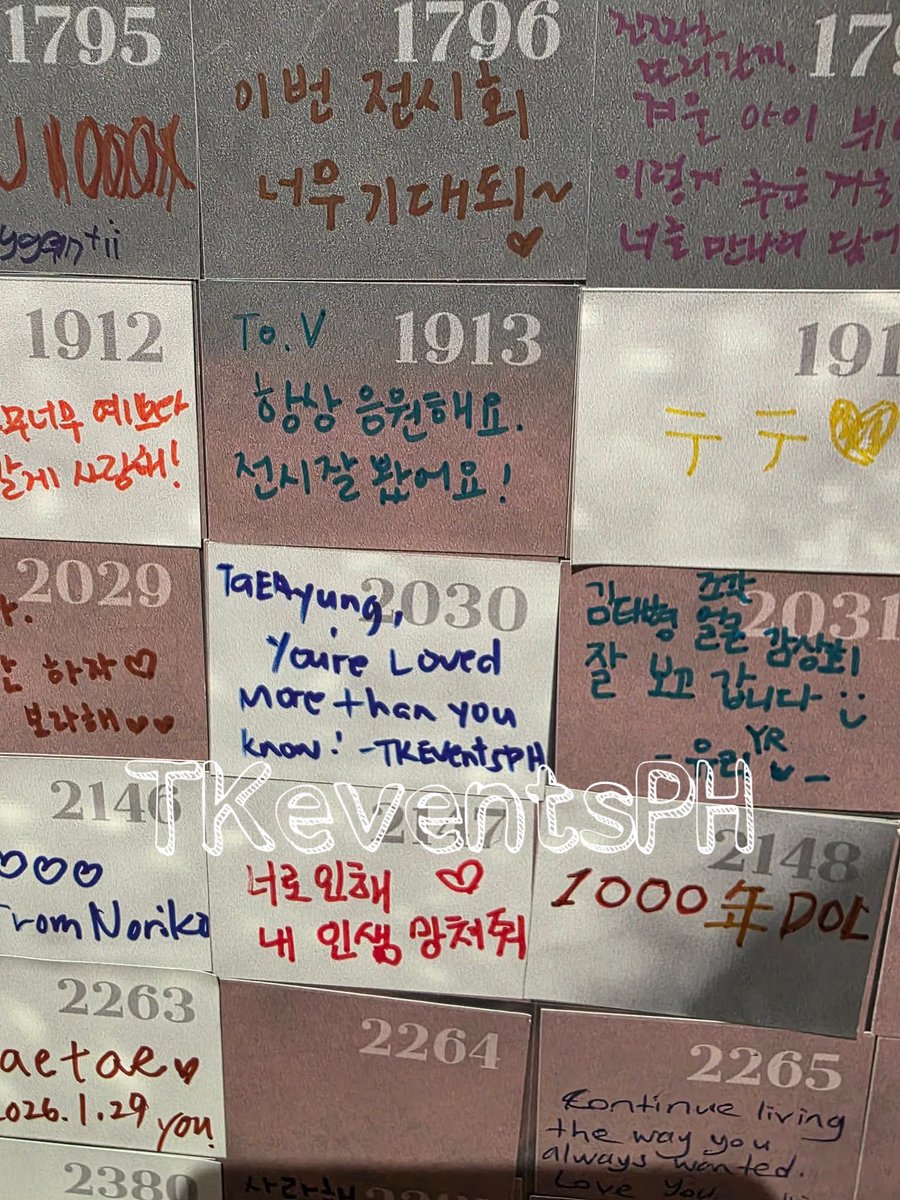 1795
1000X
yggntii
1796
이번 전시회
너무 기대되~
따러갈께.
겨울 아이 뷔
이렇게 추운 겨울
너를 만나러
1912
너무 예쁘다
사랑해!
To.V
1913
항상 응원해요.
전시잘 봤어요!
ㅜ ㅜ
2029
하자
보라해
TaEHyung,
2030
You're Loved
More than you
know! -TKEventsPH
2031
김태형 조각
얼굴 감상회
잘 보고 갑니다
YR
- 우리 -
TKeventsPH
2146
From Noriko
2147
너로인해
내 인생 망쳐줘
2148
1000年 DOL
2263
aetae
2026.1.29 you!
2264
2265
Continue living
the way you
always wanted.
Love You
2380
사랑해